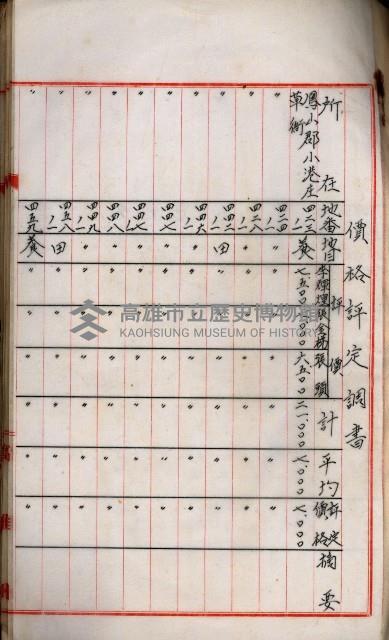 價格評定調書
所在 地番 地目 評價 計 平均 評定價格 摘要
鳳山郡小港庄草衙 四二三ノ一 養 七.五〇〇 七.〇〇〇 六.五〇〇 二一.〇〇〇 七.〇〇〇 七.〇〇〇
〃 四二四 〃 〃 〃 〃 〃 〃 〃
〃 四二八ノ一 〃 〃 〃 〃 〃 〃 〃
〃 田 〃 〃 〃 〃 〃 〃
〃 四四六ノ一 〃 〃 〃 〃 〃 〃 〃
〃 四四七 〃 〃 〃 〃 〃 〃 〃
〃 四四七ノ一 〃 〃 〃 〃 〃 〃 〃
〃 四四八 〃 〃 〃 〃 〃 〃 〃
〃 四四九ノ一 〃 〃 〃 〃 〃 〃 〃
〃 四五八ノ一 田 〃 〃 〃 〃 〃 〃
〃 四五九 養 〃 〃 〃 〃 〃 〃
高雄市立歷史博物館
KAOHSIUNG MUSEUM OF HISTORY